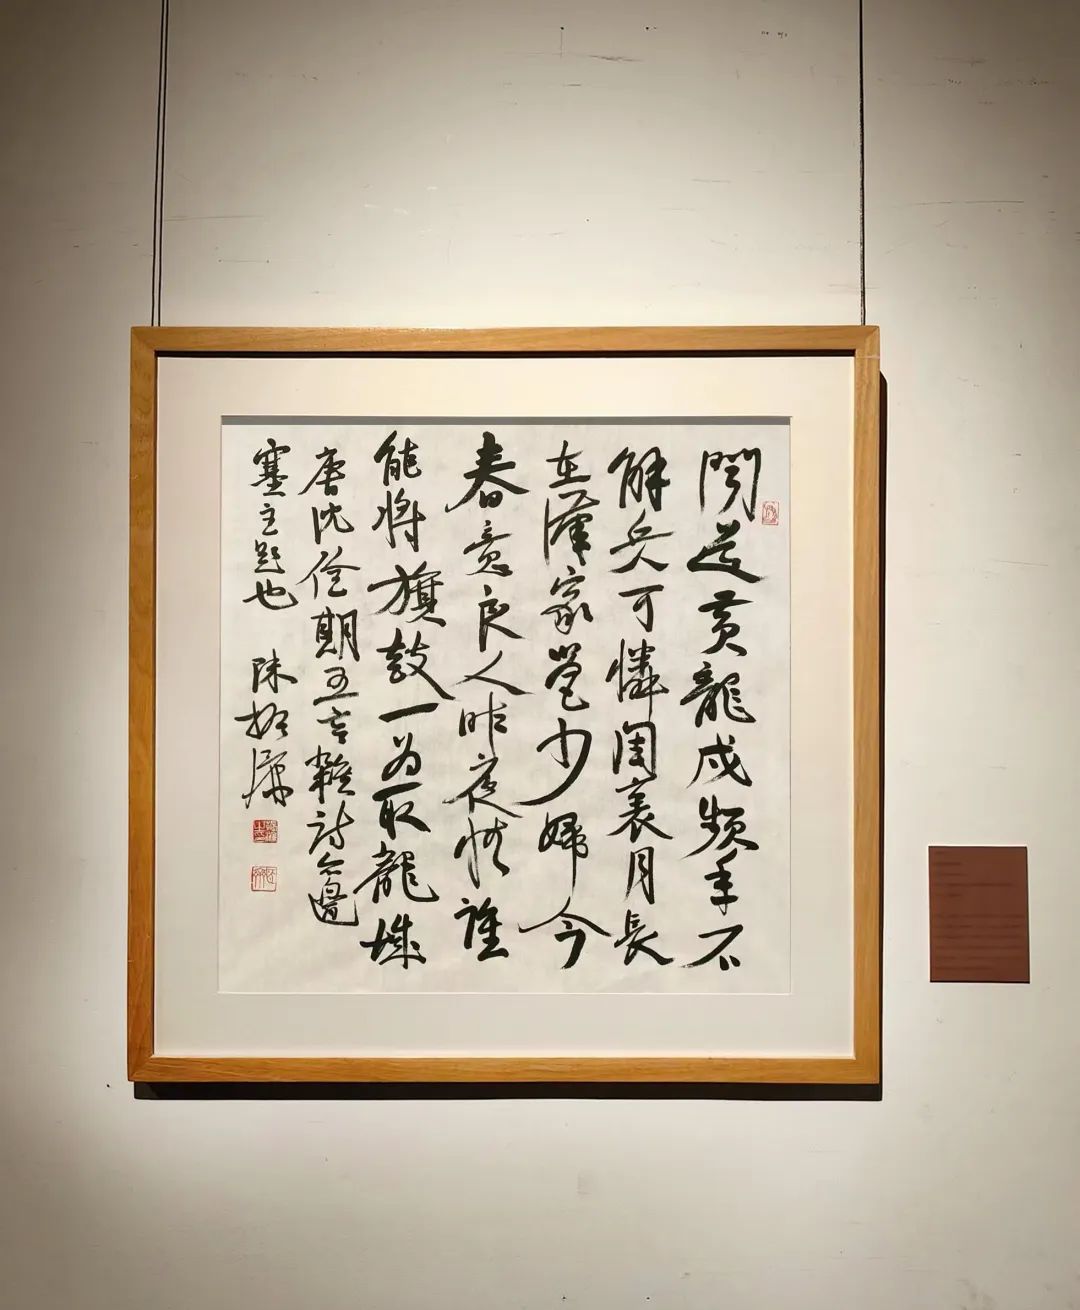 聞道黃龍戍頻年不
解兵可憐閨裏月長
在漢家營少婦今
春意良人昨夜情誰
能將旗鼓一为取龍城
唐沈佺期五言雜詩邊
塞主題也 陳振濂